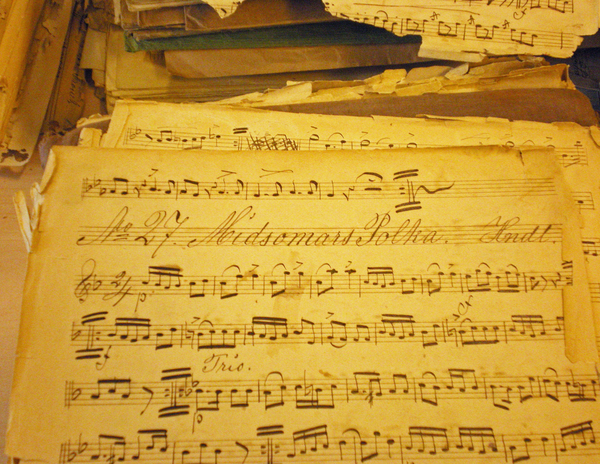 No 27. Midsomars Polka. Hndl.
2/4
p.
Cr
f
Trio.
p